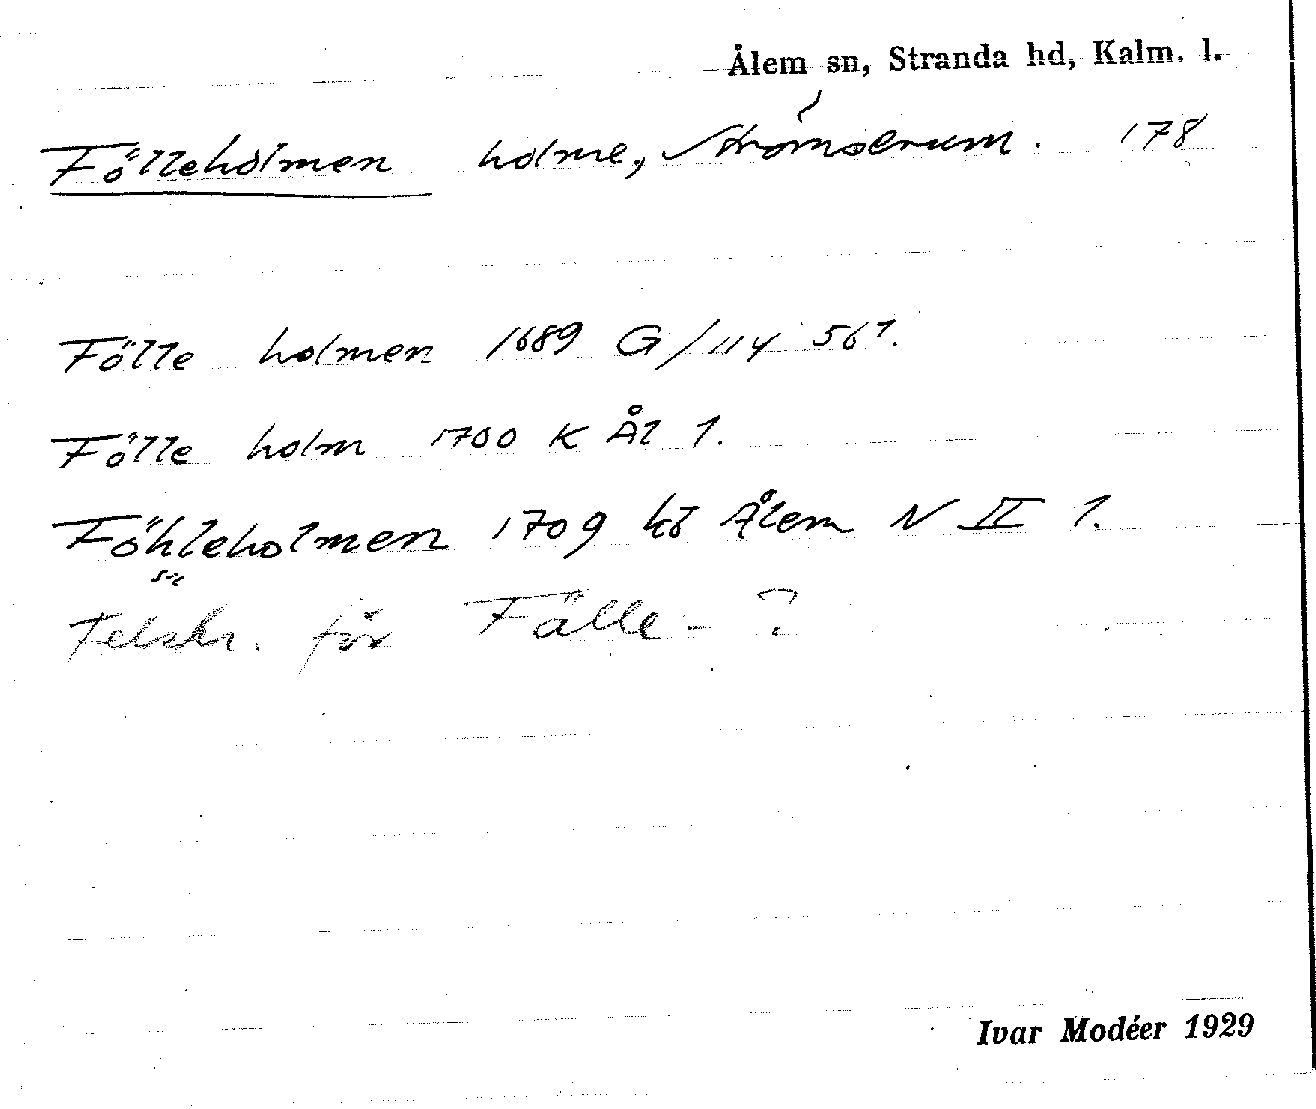 Ålem sn, Stranda hd, Kalm. l.
Fölleholmen holme, Strömserum. 178
Fölle holmen 1689 G/114 561.
Fölle holm 1700 K Ål 1.
Föhleholmen 1709 kb Ålem N II 1.
sic
Felskr. för Fälle- ?
Ivar Modéer 1929